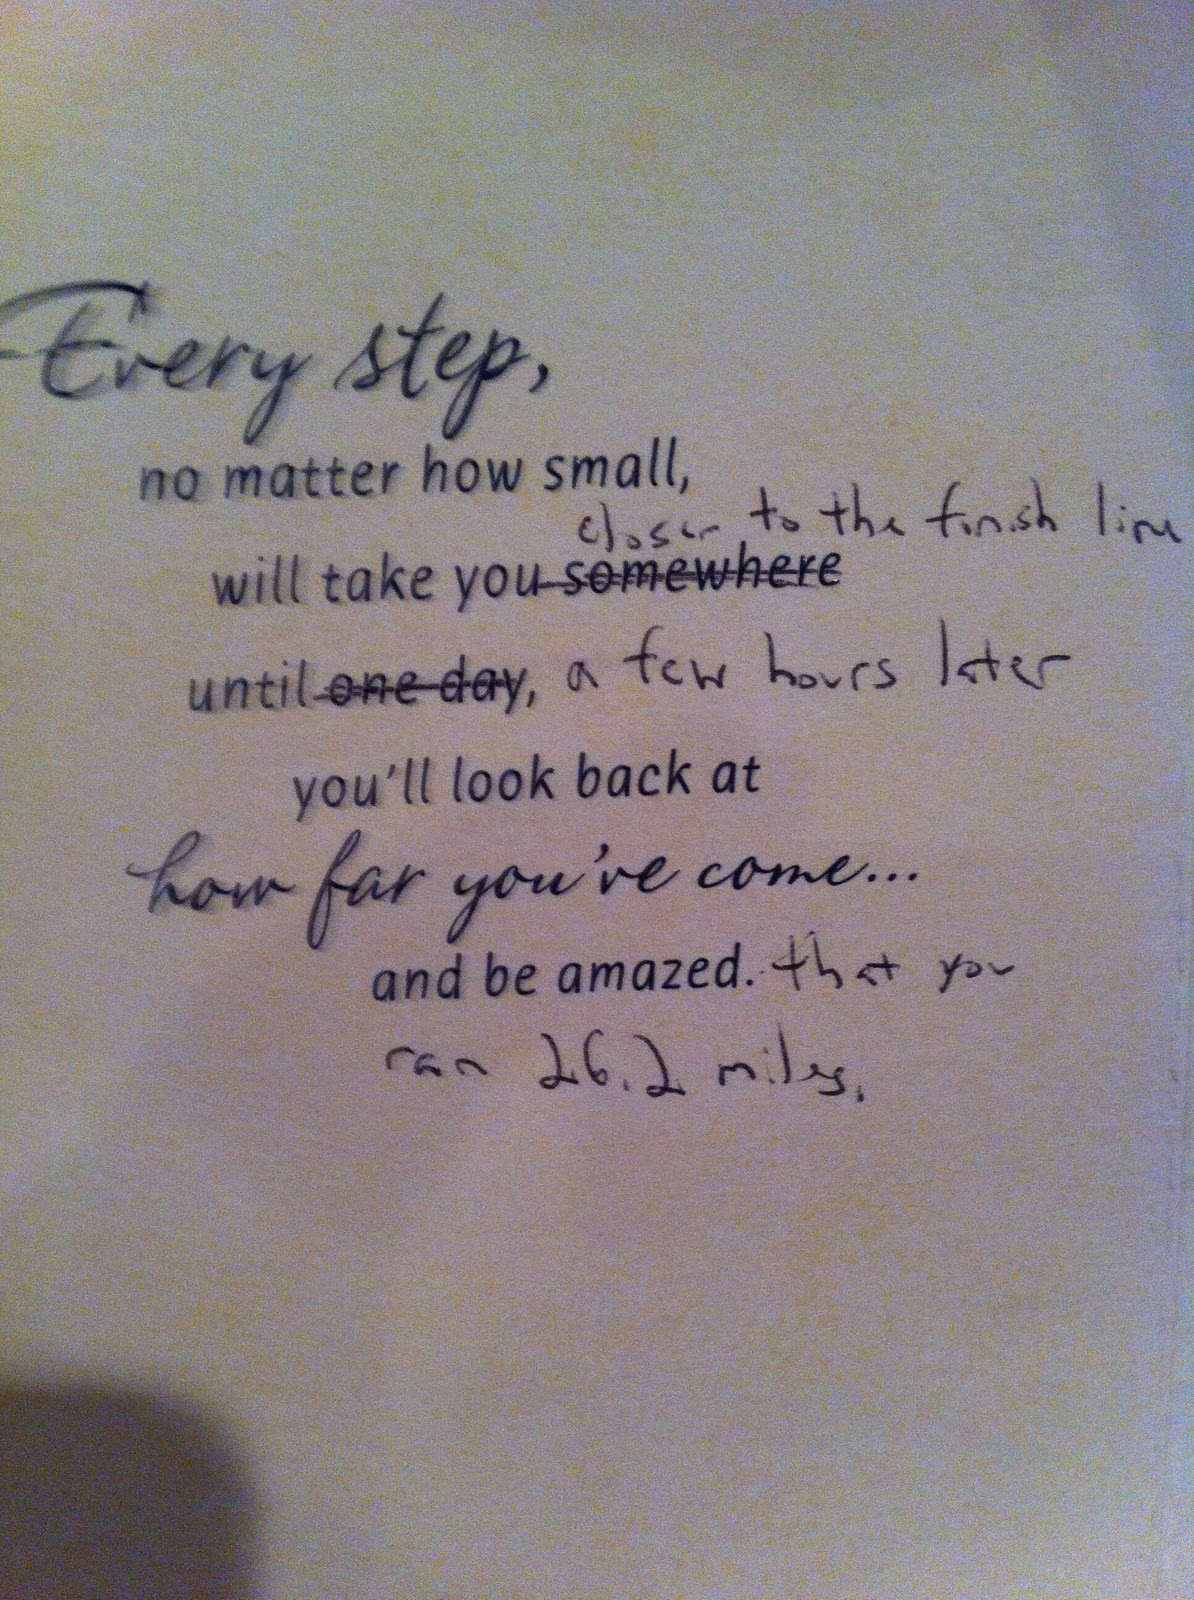 Every step,
no matter how small,
closer to the finish line
will take you somewhere
until one day, a few hours later
you'll look back at
how far you've come...
and be amazed. that you
ran 26.2 miles.